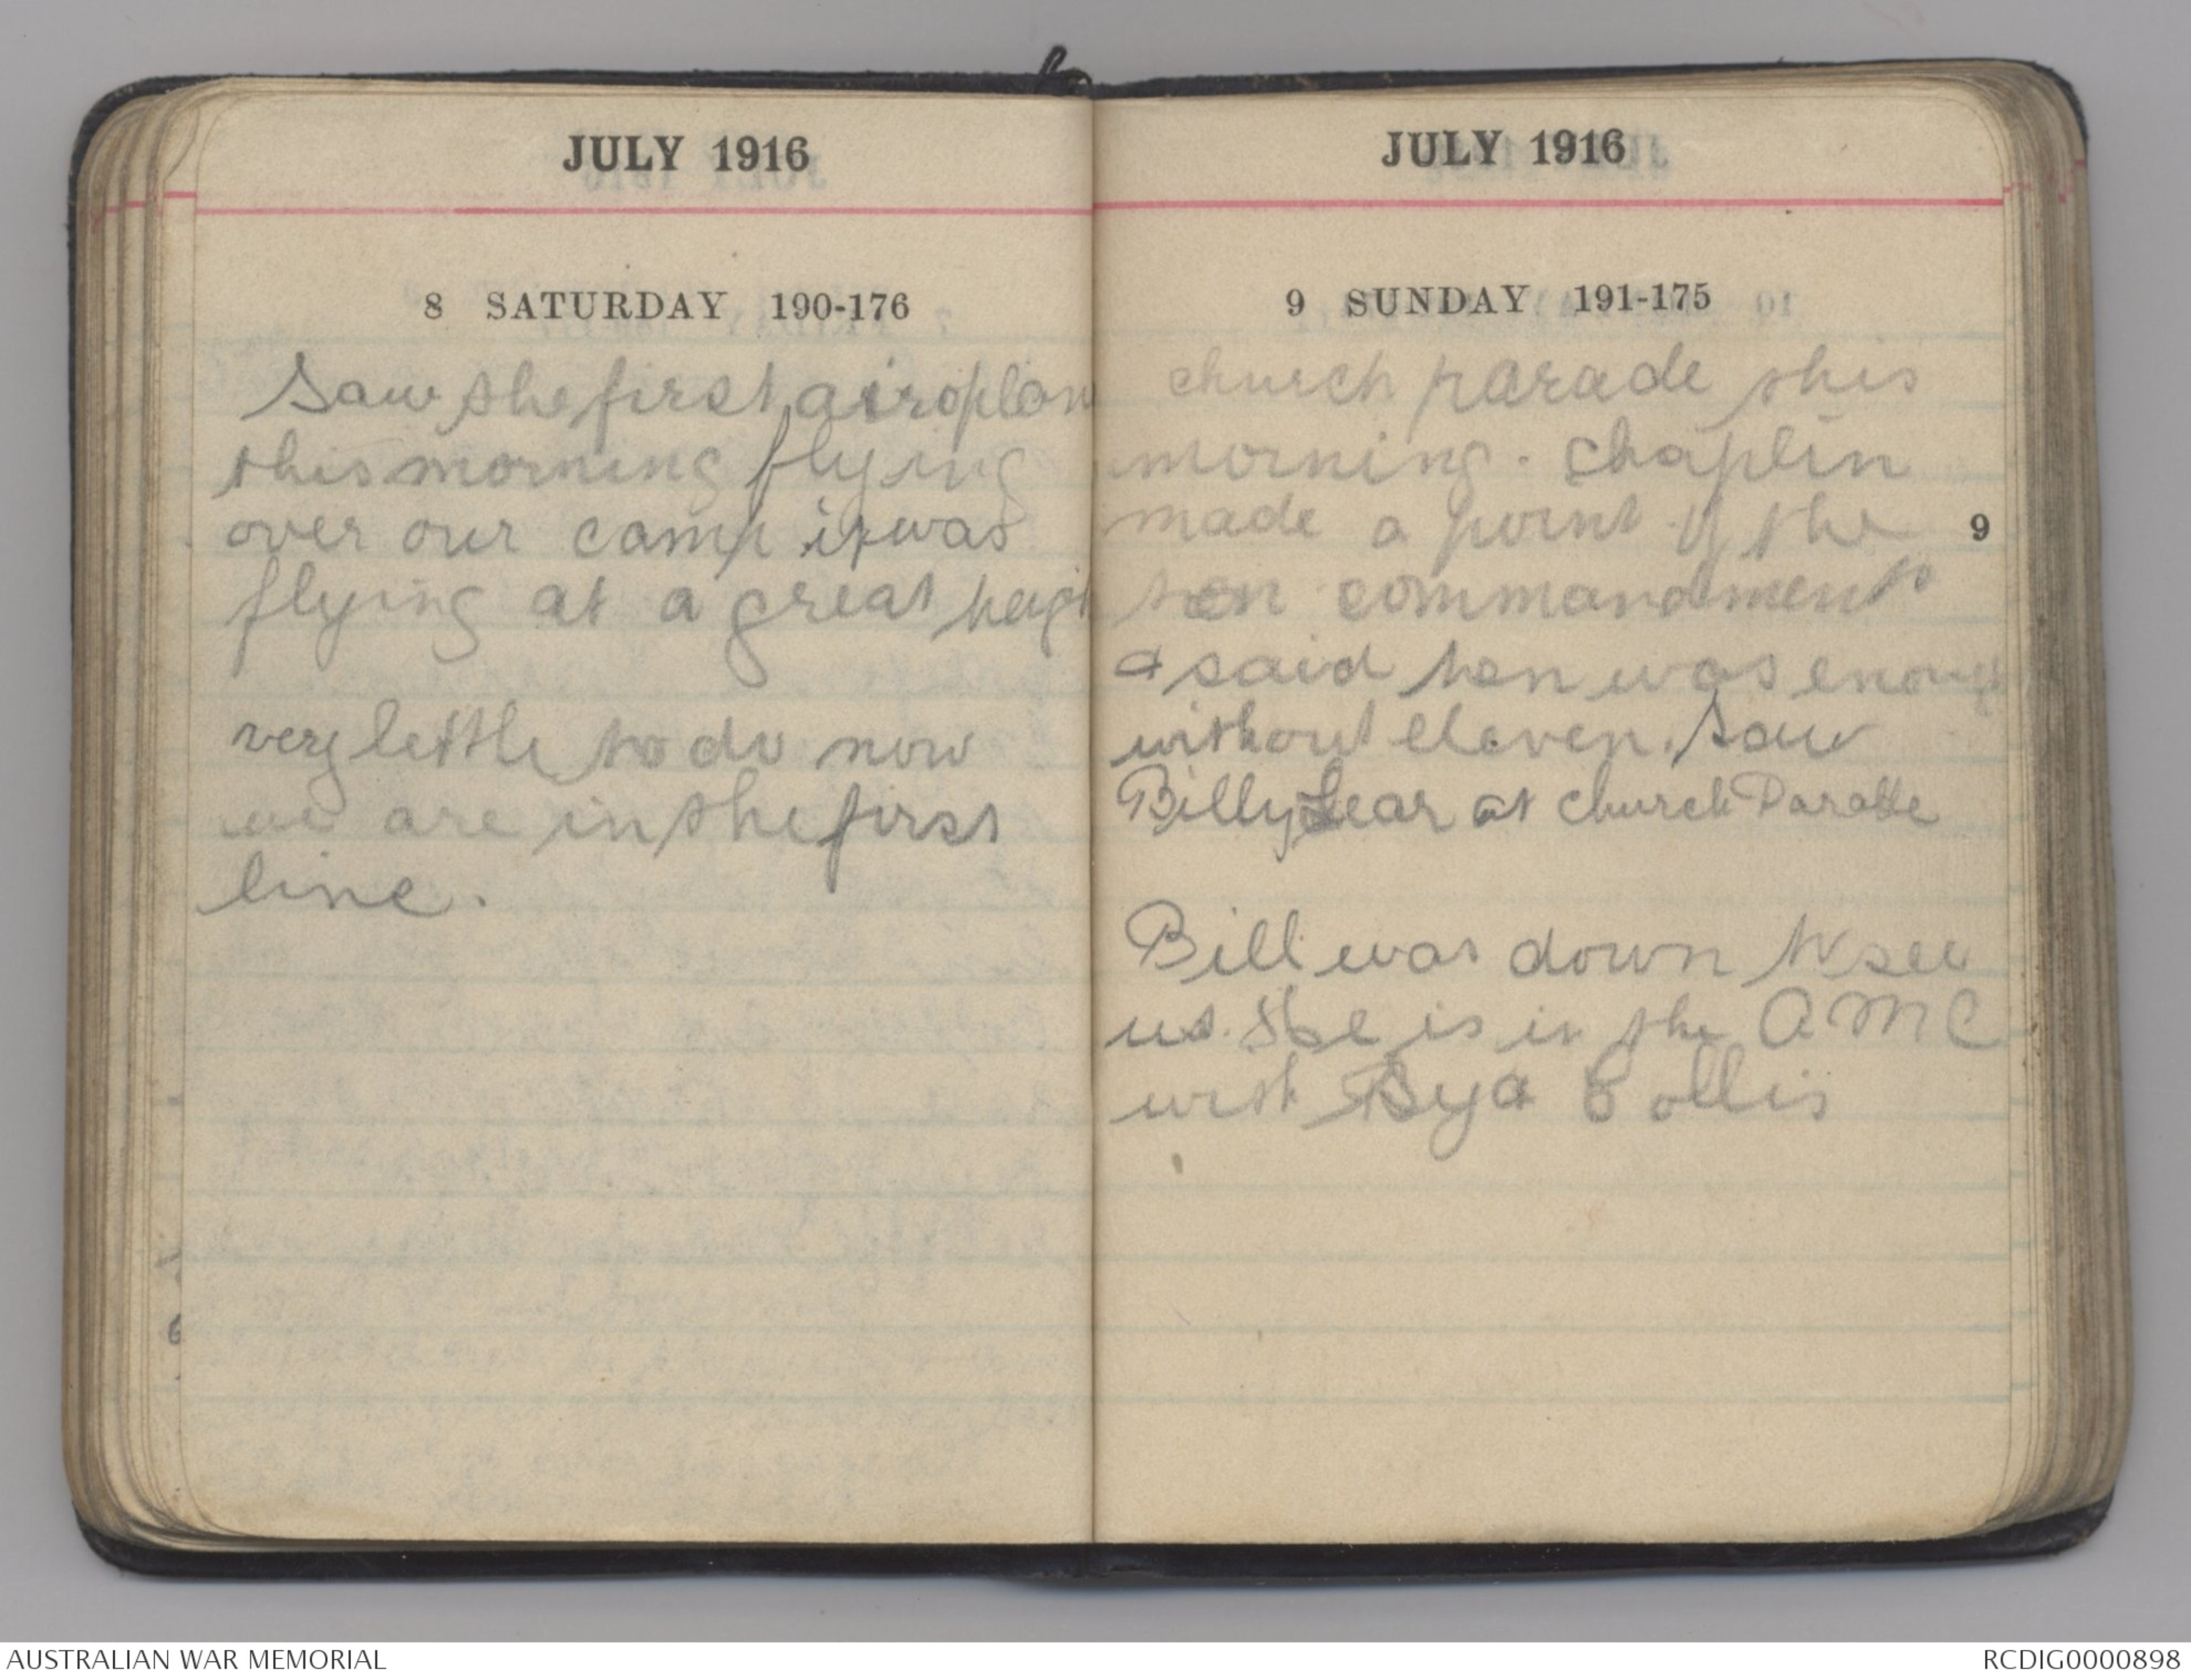 JULY 1916
8 SATURDAY 190-176
Saw the first airoplan
this morning flying
over our camp it was
flying at a great heigh
very little to do now
we are in the first
line.
JULY 1916
9 SUNDAY 191-175
church parade this
morning. chaplin
made a point of the
9
ten commandments
& said ten was enough
without eleven. Saw
Billy Lear at church Parade
Bill was down to see
us. He is in the AMC
with
6
AUSTRALIAN WAR MEMORIAL
RCDIG0000898